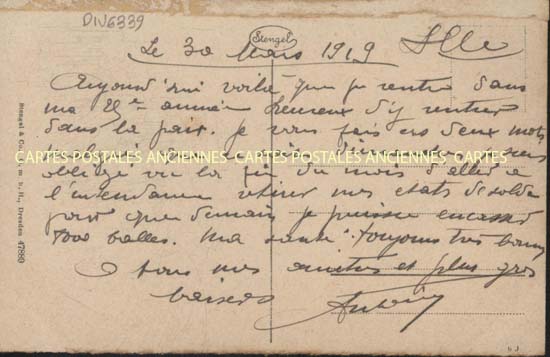 DIV6339
Stengel
Le 30 Mars 1919
Aujourd'hui voilà que je rentre dans
ma 25e année heureux d'y rentrer
dans la paix. je vous fais ces deux mots
CARTES POSTALES ANCIENNES CARTES POSTALES ANCIENNES CARTES POSTALES ANCIENNES
obligé vu la fin du mois d'aller à
l'intendance retirer mes etats de solde
pour que demain je puisse encaisser
800 balles. Ma santé toujours très bonne
à tous mes amitiés et plus gros
baisers
Stengel & Co., G. m. b. H., Dresden 47880